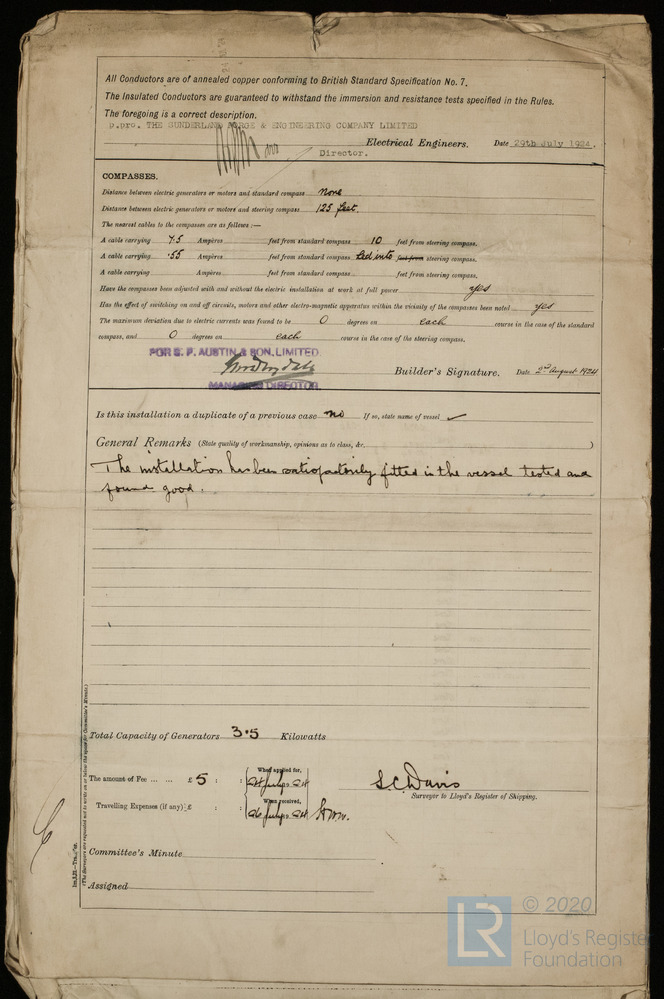 All Conductors are of annealed copper conforming to British Standard Specification No. 7.
The Insulated Conductors are guaranteed to withstand the immersion and resistance tests specified in the Rules.
The foregoing is a correct description.
p.pro. THE SUNDERLAND FORGE & ENGINEERING COMPANY LIMITED
Electrical Engineers. Date 29th July 1924.
Director.
COMPASSES.
Distance between electric generators or motors and standard compass None
Distance between electric generators or motors and steering compass 125 feet.
The nearest cables to the compasses are as follows :—
A cable carrying 7.5 Ampères feet from standard compass 10 feet from steering compass.
A cable carrying .55 Ampères feet from standard compass Led into feet from steering compass.
A cable carrying Ampères feet from standard compass feet from steering compass.
Have the compasses been adjusted with and without the electric installation at work at full power yes
Has the effect of switching on and off circuits, motors and other electro-magnetic apparatus within the vicinity of the compasses been noted yes
The maximum deviation due to electric currents was found to be 0 degrees on each course in the case of the standard
compass, and 0 degrees on each course in the case of the steering compass.
FOR S. P. AUSTIN & SON, LIMITED.
Builder's Signature. Date 2nd August 1924
MANAGING DIRECTOR
Is this installation a duplicate of a previous case no If so, state name of vessel ✓
General Remarks (State quality of workmanship, opinions as to class, &c. )
The installation has been satisfactorily fitted in the vessel tested and
found good.
Total Capacity of Generators 3.5 Kilowatts
The amount of Fee ... ... £ 5 : :
When applied for,
24 July 1924
S.C. Davis
Surveyor to Lloyd's Register of Shipping.
Travelling Expenses (if any) £ : :
When received,
26 July 1924
Committee's Minute
Assigned
(The Surveyors are requested not to write on or below the space for Committee's Minute.)
© 2020
LR
Lloyd's Register
Foundation